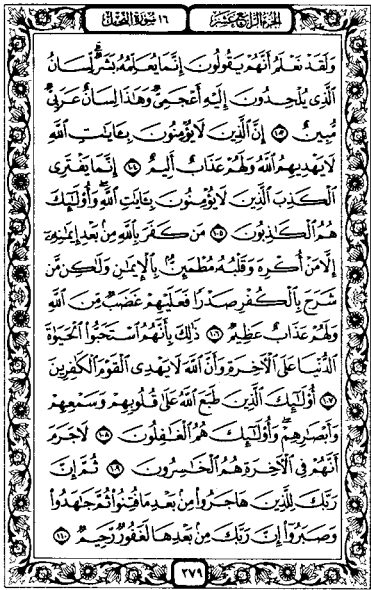 الجزء الرابع عشر
١٦ سورة النحل
وَلَقَدْ نَعْلَمُ أَنَّهُمْ يَقُولُونَ إِنَّمَا يُعَلِّمُهُ بَشَرٌ لِّسَانُ
الَّذِى يُلْحِدُونَ إِلَيْهِ أَعْجَمِىٌّ وَهَٰذَا لِسَانٌ عَرَبِىٌّ
مُّبِينٌ ١٠٣ إِنَّ الَّذِينَ لَا يُؤْمِنُونَ بِـَٔايَٰتِ اللَّهِ
لَا يَهْدِيهِمُ اللَّهُ وَلَهُمْ عَذَابٌ أَلِيمٌ ١٠٤ إِنَّمَا يَفْتَرِى
الْكَذِبَ الَّذِينَ لَا يُؤْمِنُونَ بِـَٔايَٰتِ اللَّهِ وَأُوْلَٰٓئِكَ
هُمُ الْكَٰذِبُونَ ١٠٥ مَن كَفَرَ بِاللَّهِ مِنۢ بَعْدِ إِيمَٰنِهِۦٓ
إِلَّا مَنْ أُكْرِهَ وَقَلْبُهُۥ مُطْمَئِنٌّۢ بِالْإِيمَٰنِ وَلَٰكِن مَّن
شَرَحَ بِالْكُفْرِ صَدْرًا فَعَلَيْهِمْ غَضَبٌ مِّنَ اللَّهِ
وَلَهُمْ عَذَابٌ عَظِيمٌ ١٠٦ ذَٰلِكَ بِأَنَّهُمُ اسْتَحَبُّوا الْحَيَوٰةَ
الدُّنْيَا عَلَى الْأٓخِرَةِ وَأَنَّ اللَّهَ لَا يَهْدِى الْقَوْمَ الْكَٰفِرِينَ
١٠٧ أُوْلَٰٓئِكَ الَّذِينَ طَبَعَ اللَّهُ عَلَىٰ قُلُوبِهِمْ وَسَمْعِهِمْ
وَأَبْصَٰرِهِمْ وَأُوْلَٰٓئِكَ هُمُ الْغَٰفِلُونَ ١٠٨ لَا جَرَمَ
أَنَّهُمْ فِى الْأٓخِرَةِ هُمُ الْخَٰسِرُونَ ١٠٩ ثُمَّ إِنَّ
رَبَّكَ لِلَّذِينَ هَاجَرُوا مِنۢ بَعْدِ مَا فُتِنُوا ثُمَّ جَٰهَدُوا
وَصَبَرُوٓا إِنَّ رَبَّكَ مِنۢ بَعْدِهَا لَغَفُورٌ رَّحِيمٌ ١١٠
٢٧٩